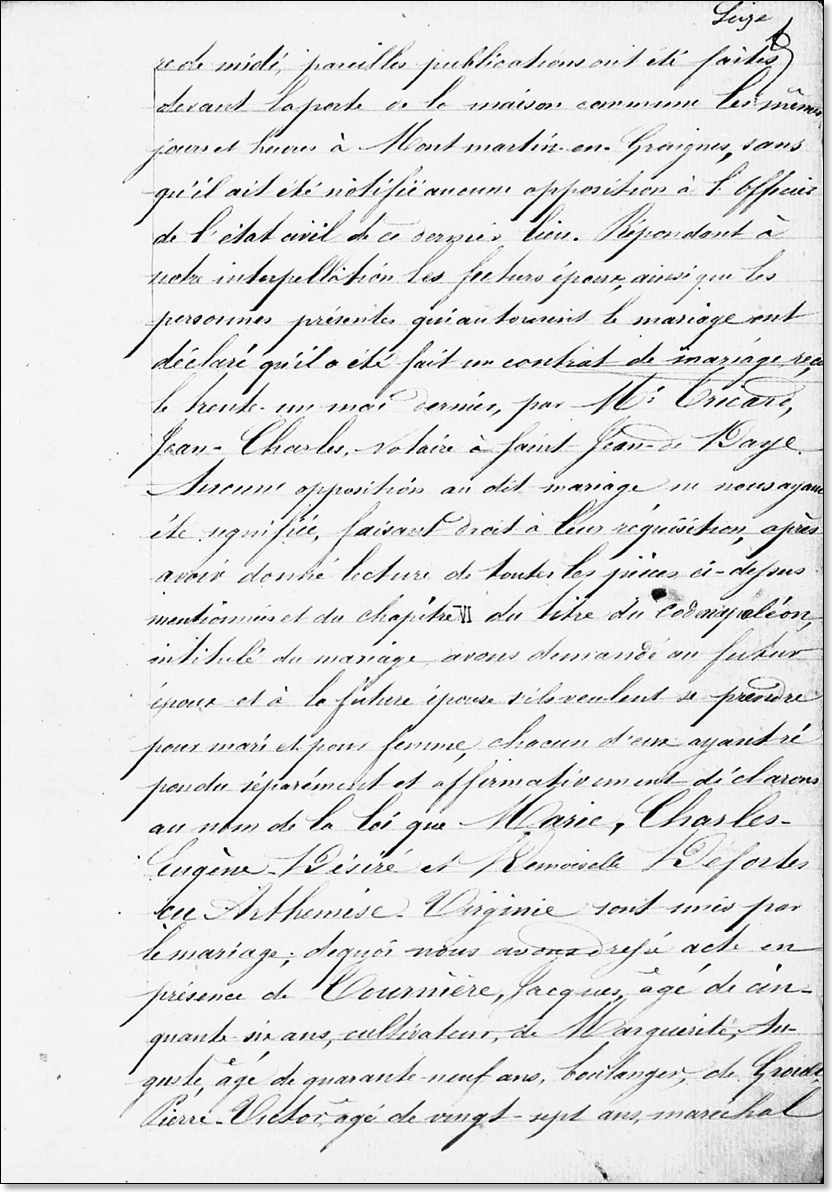 Seize
re de midi, pareilles publications ont été faites
devant la porte de la maison commune les mêmes
jours et heures à Montmartin-en-Graignes, sans
qu'il ait été notifié aucune opposition à l'officier
de l'état civil de ce dernier lieu. Répondant à
notre interpellation les futurs époux, ainsi que les
personnes présentes qui autorisent le mariage ont
déclaré qu'il a été fait un contrat de mariage reçu
le trente-un mai dernier, par Me Tricard,
Jean-Charles, Notaire à Saint Jean-de Daye.
Aucune opposition au dit mariage ne nous ayant
été signifiée, faisant droit à leur réquisition, après
avoir donné lecture de toutes les pièces ci-dessus
mentionnées et du chapitre VI du titre du code napoléon,
intitulé du mariage, avons demandé au futur
époux et à la future épouse s'ils veulent se prendre
pour mari et pour femme, chacun d'eux ayant ré
pondu séparément et affirmativement déclarons
au nom de la loi que Marie, Charles-
Eugène-Désiré et Demoiselle Defortes
cu Arthemise-Virginie sont unis par
le mariage; de quoi nous avons dressé acte en
présence de Tournière, Jacques, âgé de cin-
quante-six ans, cultivateur, de Marguerite, Au-
guste, âgé de quarante-neuf ans, boulanger, de
Pierre-Victor, âgé de vingt-sept ans, maréchal